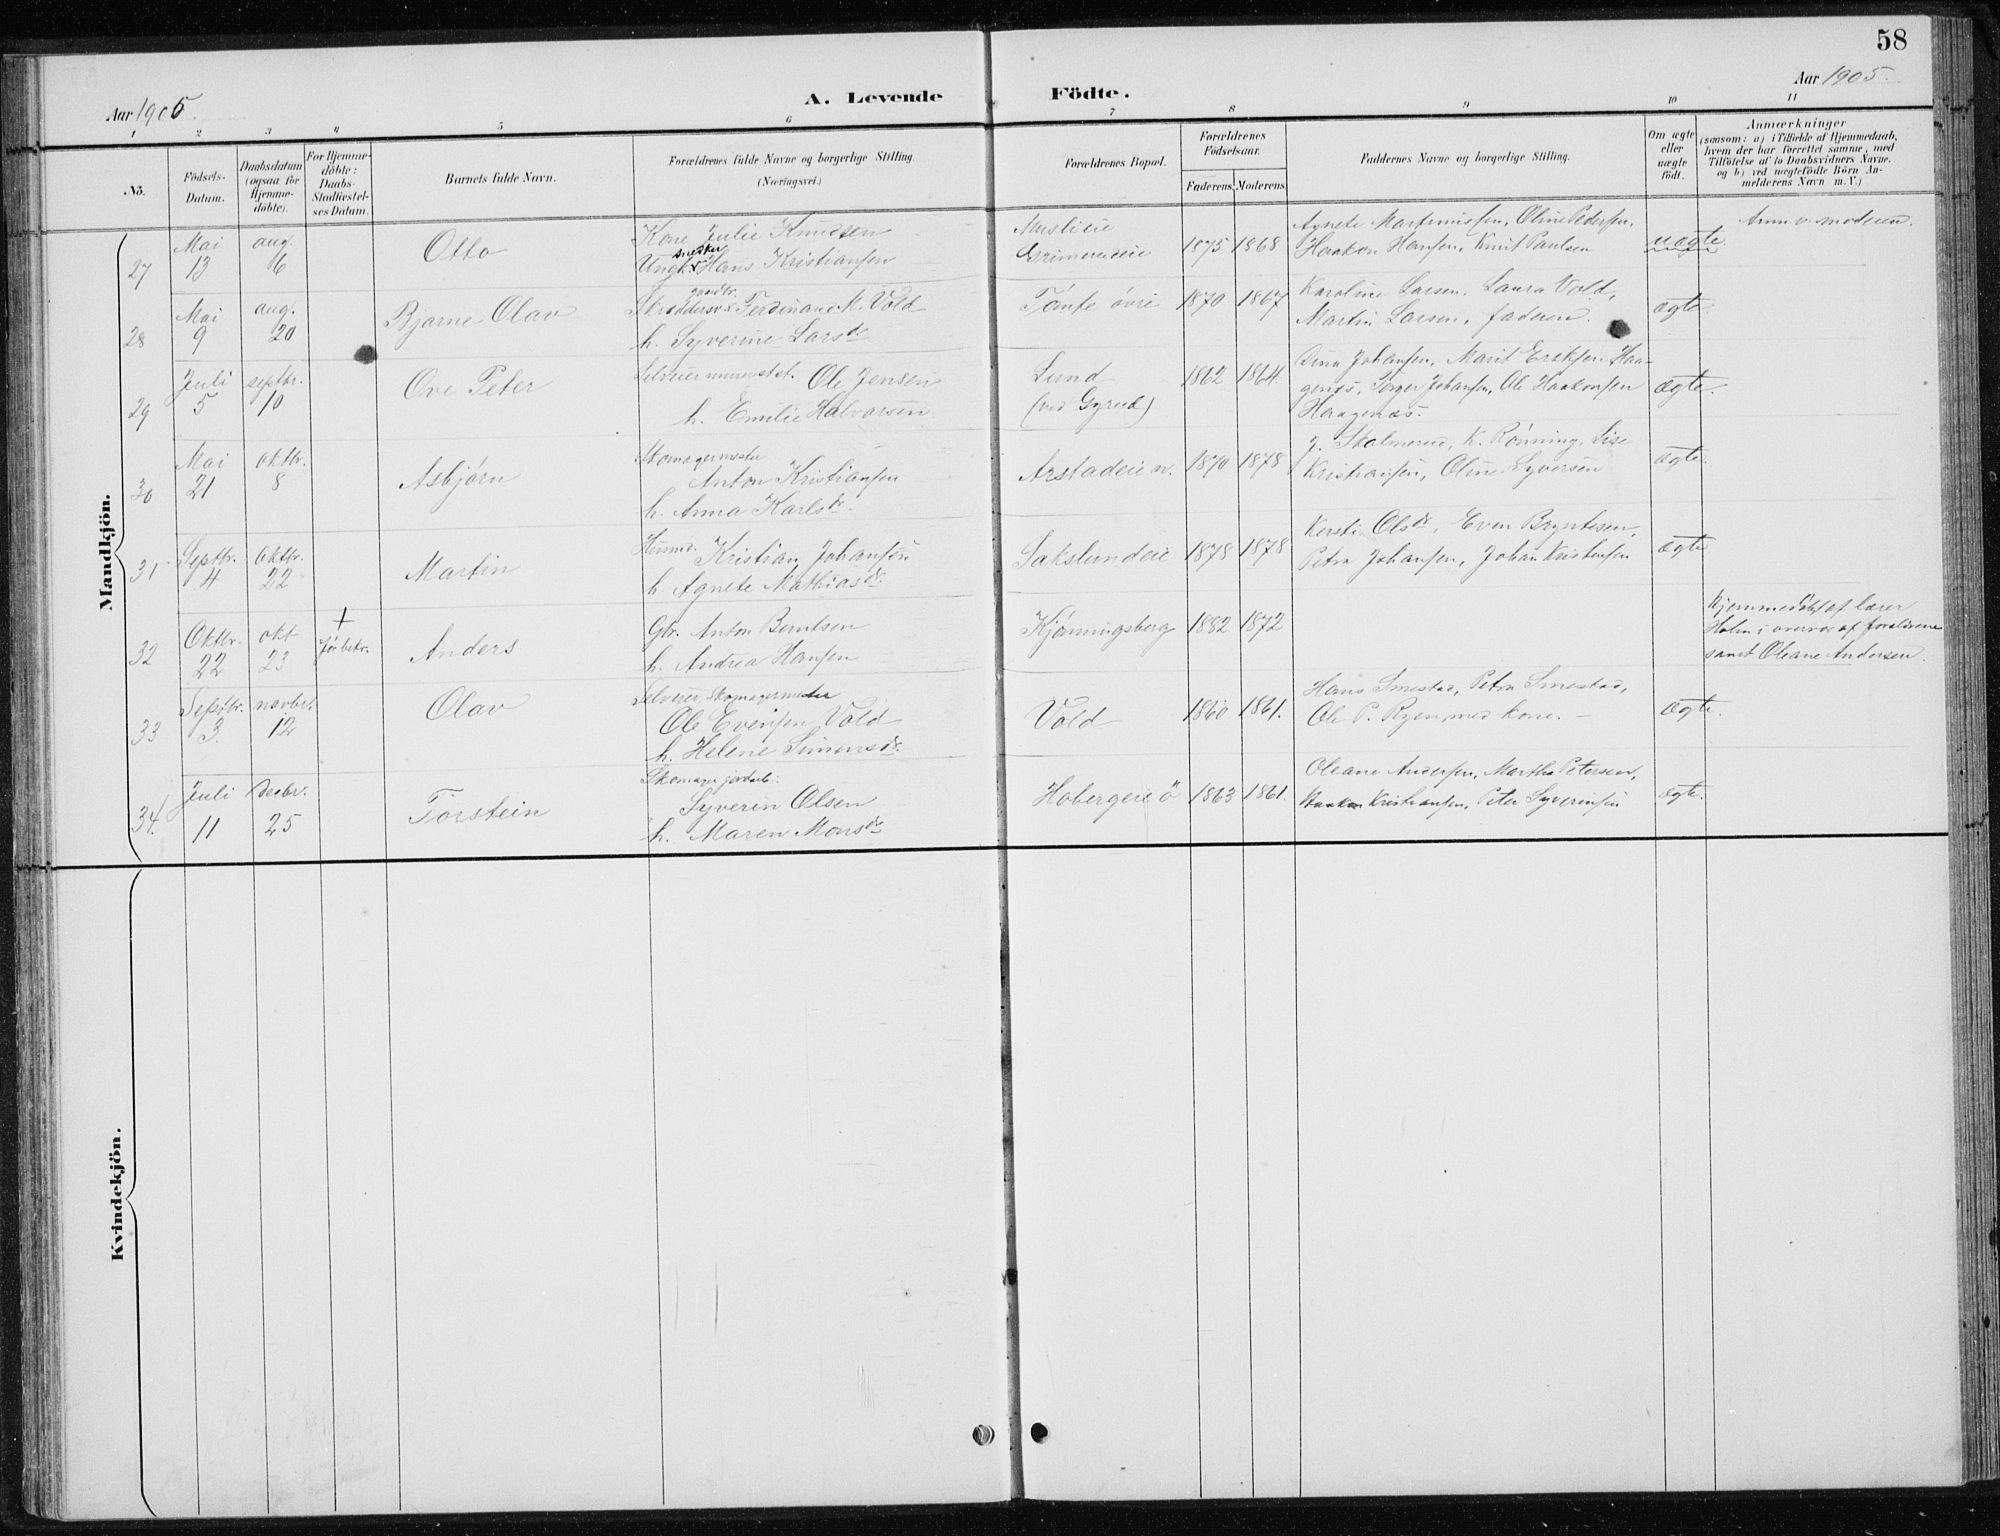 58
Aar 1905.
A. Levende Födte.
Aar 1905.
1 2 3 4 5 6 7 8 9 10 11
No.
Födsels-Datum.
Daabsdatum (ogsaa for Hjemme-döbte).
For Hjemme-döbte: Daabs-Stadfæstel-ses Datum.
Barnets fulde Navn.
Forældrenes fulde Navne og borgerlige Stilling. (Næringsvei.)
Forældrenes Bopæl.
Forældrenes Födselsaar.
Faderens Moderens
Faddernes Navne og borgerlige Stilling.
Om ægte eller uægte født.
Anmærkninger
(saasom: a) i Tilfælde af Hjemmedaab,
hvem der har forrettet samme, med
Tilföielse af to Daabsvidners Navne.
og b) ved uægtefödte Börn An-
melderens Navn m. V.)
Mandkjön.
27 Mai 13 aug. 6 Otto
Kone Julie Knudsen
Ungk. snedker Hans Kristiansen
Muslieie
Grimerudeie
1875 1868
Agnete Martinussen, Oline Pedersen,
Haakon Hansen, Knut Paulsen
uægte.
Anm. v. moderen.
28 Mai 9 aug. 20 Bjarne Olav
Skræddersv. gaardbr. Ferdinand M. Vold
h. Syverine Larsdr
Tømte övre
1870 1867
Karoline Larsen, Laura Vold,
Martin Larsen, faderen.
ægte.
29 Juli 5 septbr. 10 Ove Peter
Selveier Ole Jensen
h. Emilie Halvorsen
Lund
(ved Gyrud)
1862 1864.
Dina Johansen, Marit Eriksen Haa-
genås, Torger Johansen, Ole Haakonsen
Haagenæs.
ægte.
30 Mai 21 oktbr. 8 Asbjørn
Skomagermester
Anton Kristiansen
h. Anna Karlsdr.
Arstadeie n.
1870 1878
J. Skolmerud, K. Rønning, Lise
Kristiansen, Oline Syversen
ægte.
31 Septbr. 4 oktbr. 22 Martin
Husmd. Kristian Johansen
h. Agnete Mathiasdr.
Sakslundeie
1878 1878
Kersti Olsdr, Even Bryntesen,
Petra Johansen, Johan Kristensen
ægte
32 Oktbr. 22 okt 23 + Før bekr. Anders
Gbr. Anton Berntsen
h. Andrea Hansen
Kjønningsberg
1882 1872
Hjemmedøbt af lærer
Holm i overvær af forældrene
samt Oleane Andersen.
33 Septbr. 3. novbr. 12 Olav
Selveier Skomagermester
Ole Evensen Vold
h. Helene Simensdr.
Vold
1860 1861.
Hans Smestad, Petra Smestad,
Ole P. Ryen med kone. –
ægte.
34. Juli 11 Decbr. 25 Torstein
Skomager jordarb.
Syverin Olsen
h. Maren Monsdr
Hobergeie ö
1863 1861.
Oleane Andersen, Martha Petersen,
Haakon Kristiansen, Peter Syverinsen
ægte.
Kvindekjön.